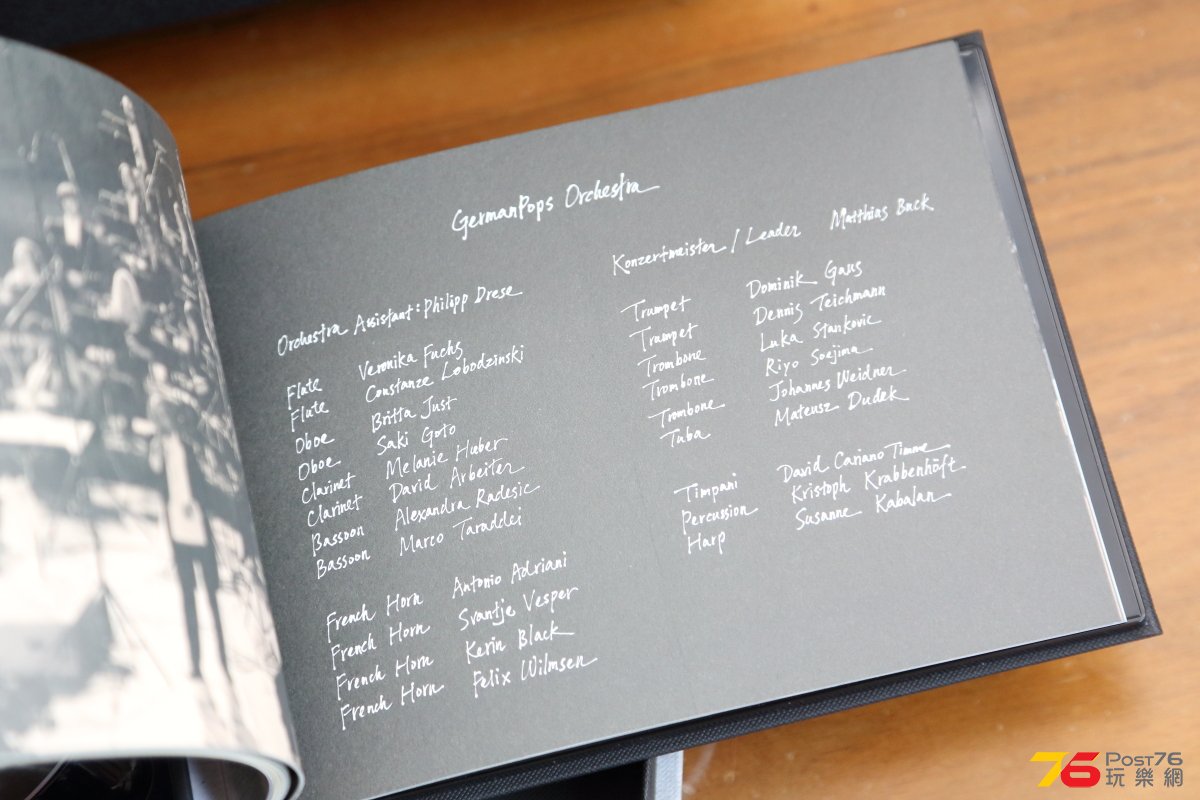 GermanPops Orchestra
Orchestra Assistant: Philipp Drese
Flute Veronika Fuchs
Flute Constanze Lobodzinski
Oboe Britta Just
Oboe Saki Goto
Clarinet Melanie Huber
Clarinet David Arbeiter
Bassoon Alexandra Radesic
Bassoon Marco Taraddei
French Horn Antonio Adriani
French Horn Svantje Vesper
French Horn Kerin Black
French Horn Felix Wilmsen
Konzertmeister / Leader Matthias Buck
Trumpet Dominik Gaus
Trumpet Dennis Teichmann
Trombone Luka Stankovic
Trombone Riyo Soejima
Trombone Johannes Weidner
Tuba Mateusz Dudek
Timpani David Cariano Timme
Percussion Kristoph Krabbenhöft
Harp Susanne Kabalan
76 POST76
玩樂網